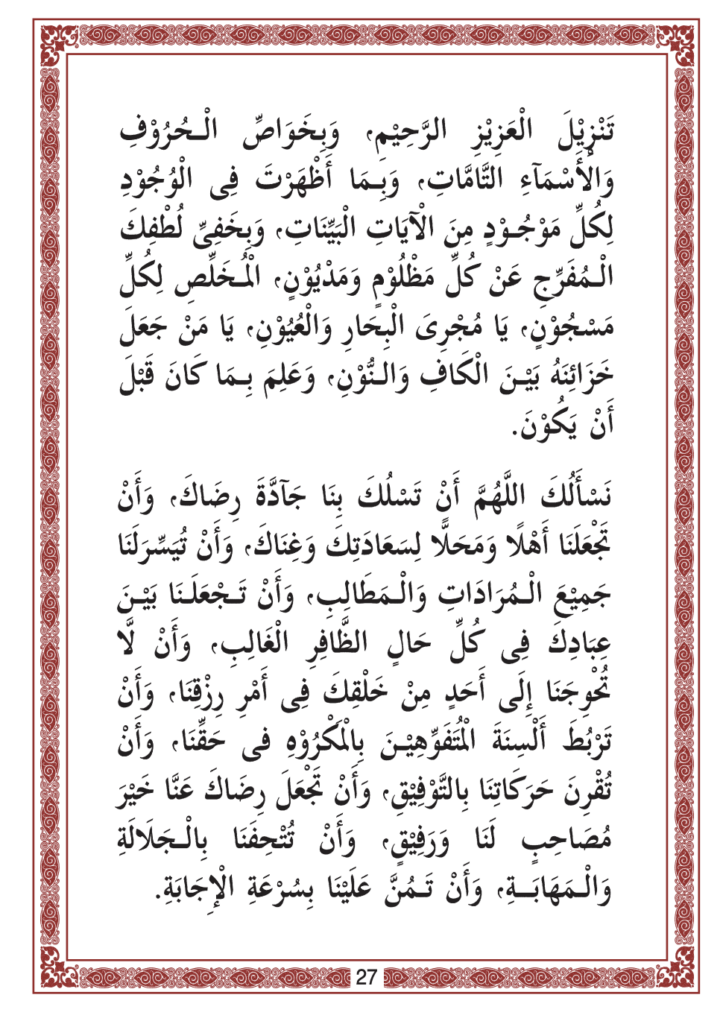 تَنْزِيْلَ الْعَزِيْزِ الرَّحِيْمِ، وَبِخَوَاصِّ الْـحُرُوْفِ
وَالْأَسْمَآءِ التَّامَّاتِ، وَبِـمَا أَظْهَرْتَ فِى الْوُجُوْدِ
لِكُلِّ مَوْجُـوْدٍ مِنَ الْآيَاتِ الْبَيِّنَاتِ، وَبِخَفِىِّ لُطْفِكَ
الْـمُفَرِّجِ عَنْ كُلِّ مَظْلُوْمٍ وَمَدْيُوْنٍ، الْمُخَلِّصِ لِكُلِّ
مَسْجُوْنٍ، يَا مُجْرِىَ الْبِحَارِ وَالْعُيُوْنِ، يَا مَنْ جَعَلَ
خَزَائِنَهُ بَيْـنَ الْكَافِ وَالـنُّوْنِ، وَعَلِمَ بِـمَا كَانَ قَبْلَ
أَنْ يَكُوْنَ.
نَسْأَلُكَ اللَّهُمَّ أَنْ تَسْلُكَ بِنَا جَآدَّةَ رِضَاكَ، وَأَنْ
تَجْعَلَنَا أَهْلًا وَمَحَلًّا لِسَعَادَتِكَ وَغِنَاكَ، وَأَنْ تُيَسِّرَلَنَا
جَمِيْعَ الْـمُرَادَاتِ وَالْـمَطَالِبِ، وَأَنْ تَـجْعَلَـنَا بَيْـنَ
عِبَادِكَ فِى كُلِّ حَالٍ الظَّافِرِ الْغَالِبِ، وَأَنْ لَّا
تُحْوِجَنَا إِلَى أَحَدٍ مِنْ خَلْقِكَ فِى أَمْرِ رِزْقِنَا، وَأَنْ
تَرْبُطَ أَلْسِنَةَ الْمُتَفَوِّهِيْـنَ بِالْمَكْرُوْهِ فى حَقِّنَا، وَأَنْ
تُقْرِنَ حَرَكَاتِنَا بِالتَّوْفِيْقِ، وَأَنْ تَجْعَلَ رِضَاكَ عَنَّا خَيْرَ
مُصَاحِبٍ لَنَا وَرَفِيْقٍ، وَأَنْ تُتْحِفَنَا بِالْـجَلَالَةِ
وَالْـمَهَابَـــةِ، وَأَنْ تَـمُنَّ عَلَيْنَا بِسُرْعَةِ الْإِجَابَةِ.
27